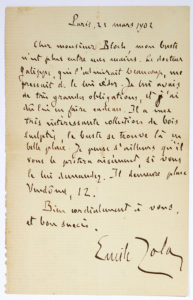 Paris, 22 mars 1902
Cher monsieur Bloch, mon buste
n'est plus entre mes mains. Le docteur
Galippe, qui l'admirait beaucoup, me
pressait de le lui céder. Je lui avais
de très grandes obligations, et j'ai
dû lui en faire cadeau. Il a une
très intéressante collection de bois
sculptés, le buste se trouve là en
belle place. Je pense d'ailleurs qu'il
vous le prêtera aisément, si vous
le lui demandez. Il demeure place
Vendôme, 12.
Bien cordialement à vous,
et bon succès.
Emile Zola